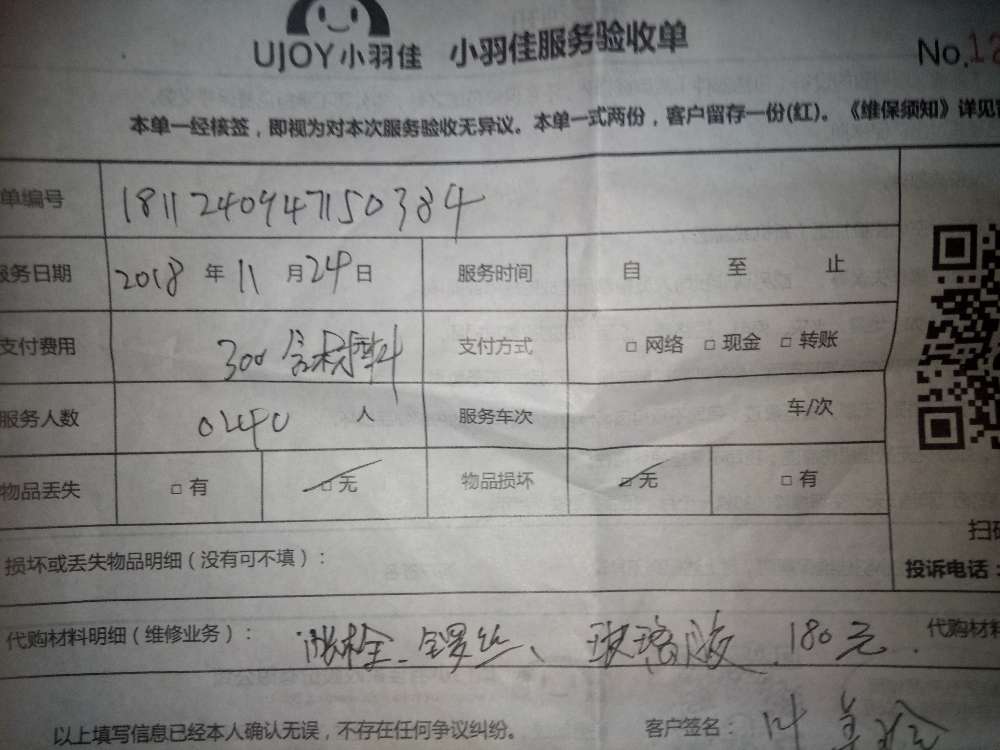 UJOY小羽佳 小羽佳服务验收单 No.12
本单一经核签，即视为对本次服务验收无异议。本单一式两份，客户留存一份(红)。《维保须知》详见
单编号 1811240947150384
服务日期 2018 年 11 月 24 日 服务时间 自 至 止
支付费用 300 含材料 支付方式 □ 网络 □ 现金 □ 转账
服务人数 0240 人 服务车次 车/次
物品丢失 □ 有 □ 无 物品损坏 □ 无 □ 有
扫码
损坏或丢失物品明细（没有可不填）： 投诉电话：
代购材料明细（维修业务）： 胀栓、锣丝、玻璃胶 180元. 代购材料
以上填写信息已经本人确认无误，不存在任何争议纠纷。 客户签名： 叶